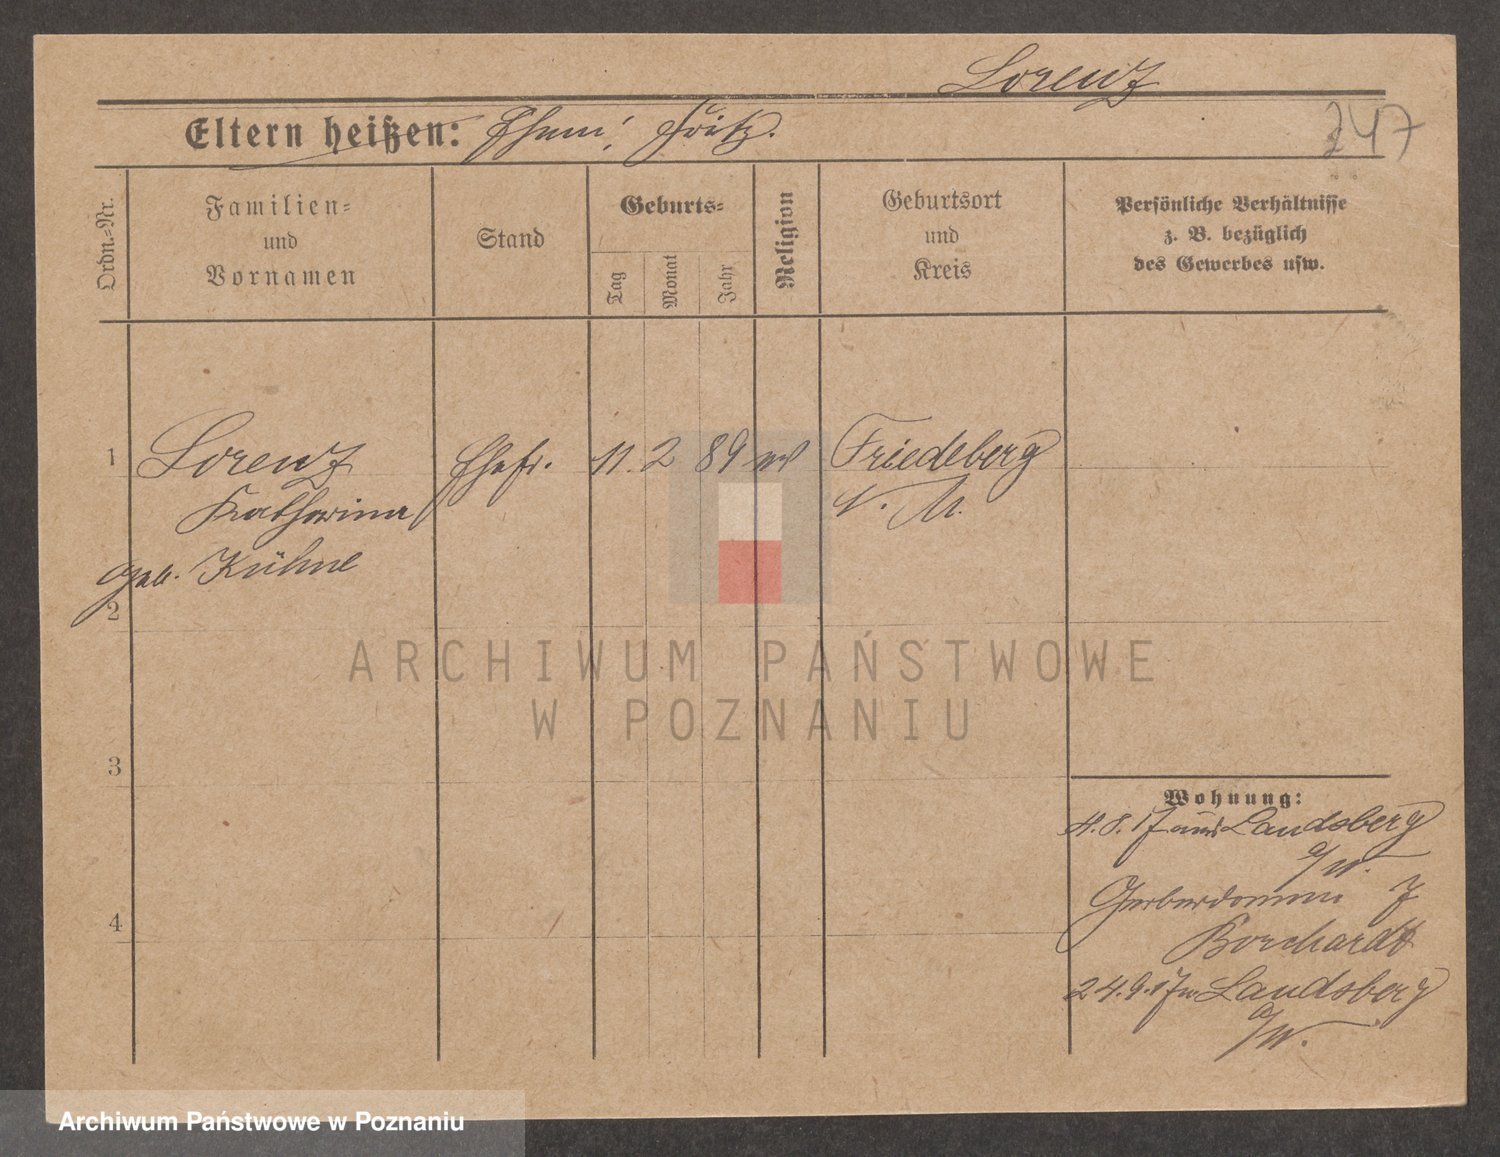 Lorenz
Eltern heißen: Ehem: Fritz.
247
Ordn.=Nr.
Familien=
und
Vornamen
Stand
Geburts=
Tag
Monat
Jahr
Religion
Geburtsort
und
Kreis
Persönliche Verhältnisse
z. B. bezüglich
des Gewerbes usw.
1 Lorenz Ehefr. 11. 2 89 ev Friedeberg
Katharina N. M.
geb. Kühne
2
3
4
Wohnung:
4. 8. 17 aus Landsberg
a/W.
Gerberdamm 7
Borchardt
24. 9. 17 n. Landsberg
a/W.
ARCHIWUM PAŃSTWOWE
W POZNANIU
Archiwum Państwowe w Poznaniu